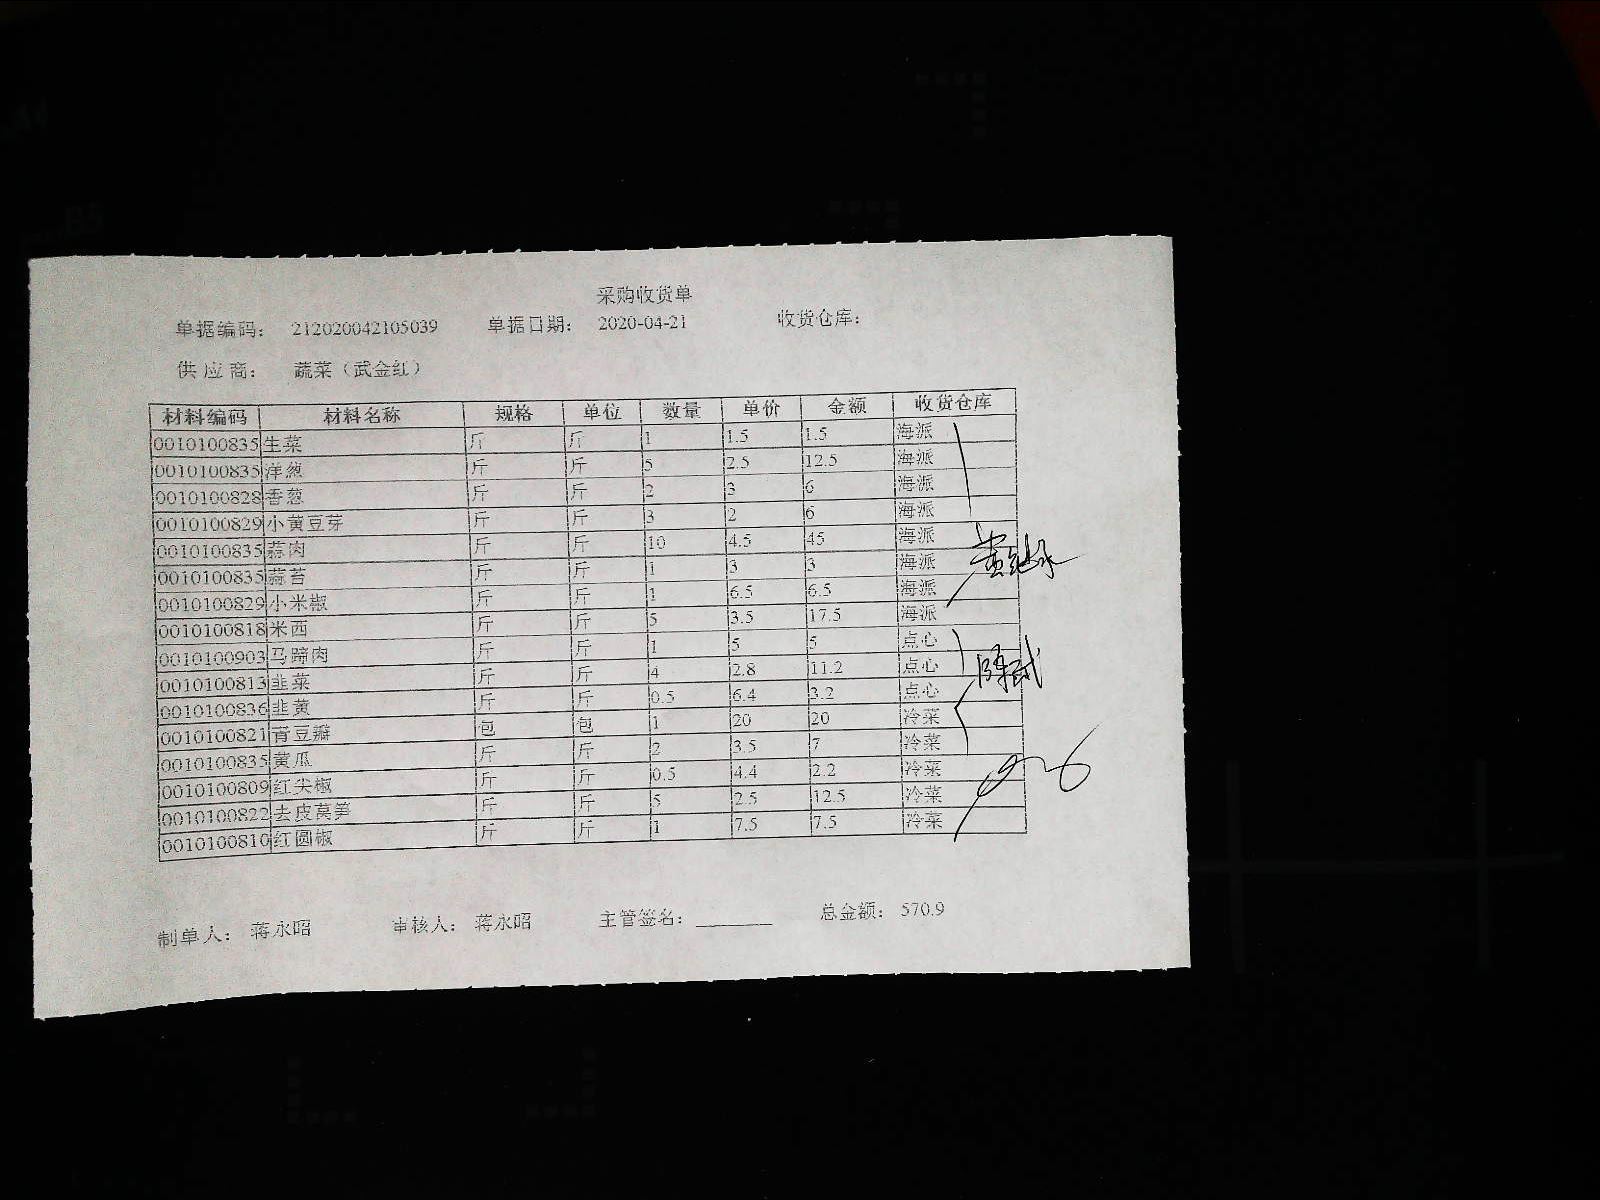 采购收货单
单据编码: 212020042105039 单据日期: 2020-04-21 收货仓库:
供应商: 蔬菜(武金红)
材料编码 材料名称 规格 单位 数量 单价 金额 收货仓库
0010100835 生菜 斤 斤 1 1.5 1.5 海派
0010100835 洋葱 斤 斤 5 2.5 12.5 海派
0010100828 香葱 斤 斤 2 3 6 海派
0010100829 小黄豆芽 斤 斤 3 2 6 海派
0010100835 蒜肉 斤 斤 10 4.5 45 海派
0010100835 蒜苔 斤 斤 1 3 3 海派
0010100829 小米椒 斤 斤 1 6.5 6.5 海派
0010100818 米西 斤 斤 5 3.5 17.5 海派
0010100903 马蹄肉 斤 斤 1 5 5 点心
0010100813 韭菜 斤 斤 4 2.8 11.2 点心
0010100836 韭黄 斤 斤 0.5 6.4 3.2 点心
0010100821 青豆瓣 包 包 1 20 20 冷菜
0010100835 黄瓜 斤 斤 2 3.5 7 冷菜
0010100809 红尖椒 斤 斤 0.5 4.4 2.2 冷菜
0010100822 去皮莴笋 斤 斤 5 2.5 12.5 冷菜
0010100810 红圆椒 斤 斤 1 7.5 7.5 冷菜
制单人: 蒋永昭 审核人: 蒋永昭 主管签名: 总金额: 570.9